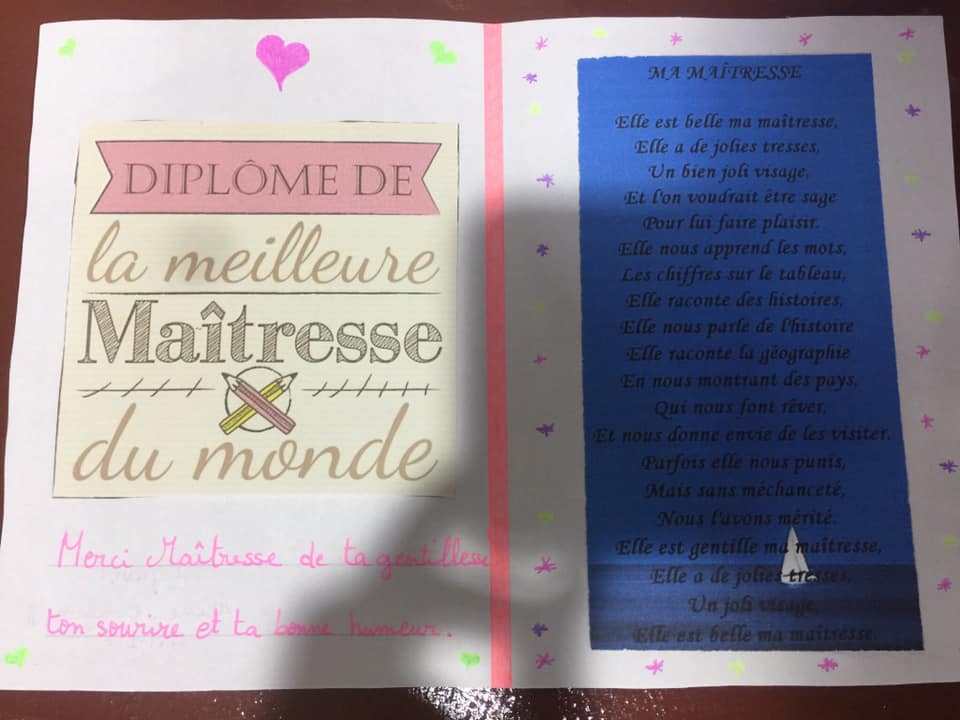 DIPLÔME DE
la meilleure
Maîtresse
du monde
Merci Maîtresse de ta gentillesse
ton sourire et ta bonne humeur.
MA MAÎTRESSE
Elle est belle ma maîtresse,
Elle a de jolies tresses,
Un bien joli visage,
Et l'on voudrait être sage
Pour lui faire plaisir.
Elle nous apprend les mots,
Les chiffres sur le tableau,
Elle raconte des histoires,
Elle nous parle de l'histoire
Elle raconte la géographie
En nous montrant des pays,
Qui nous font rêver,
Et nous donne envie de les visiter.
Parfois elle nous punis,
Mais sans méchanceté,
Nous l'avons mérité.
Elle est gentille ma maîtresse,
Elle a de jolies tresses,
Un joli visage,
Elle est belle ma maîtresse.